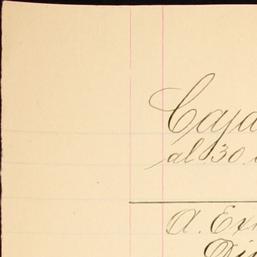 Caja
al 30.
A. Ex
Di